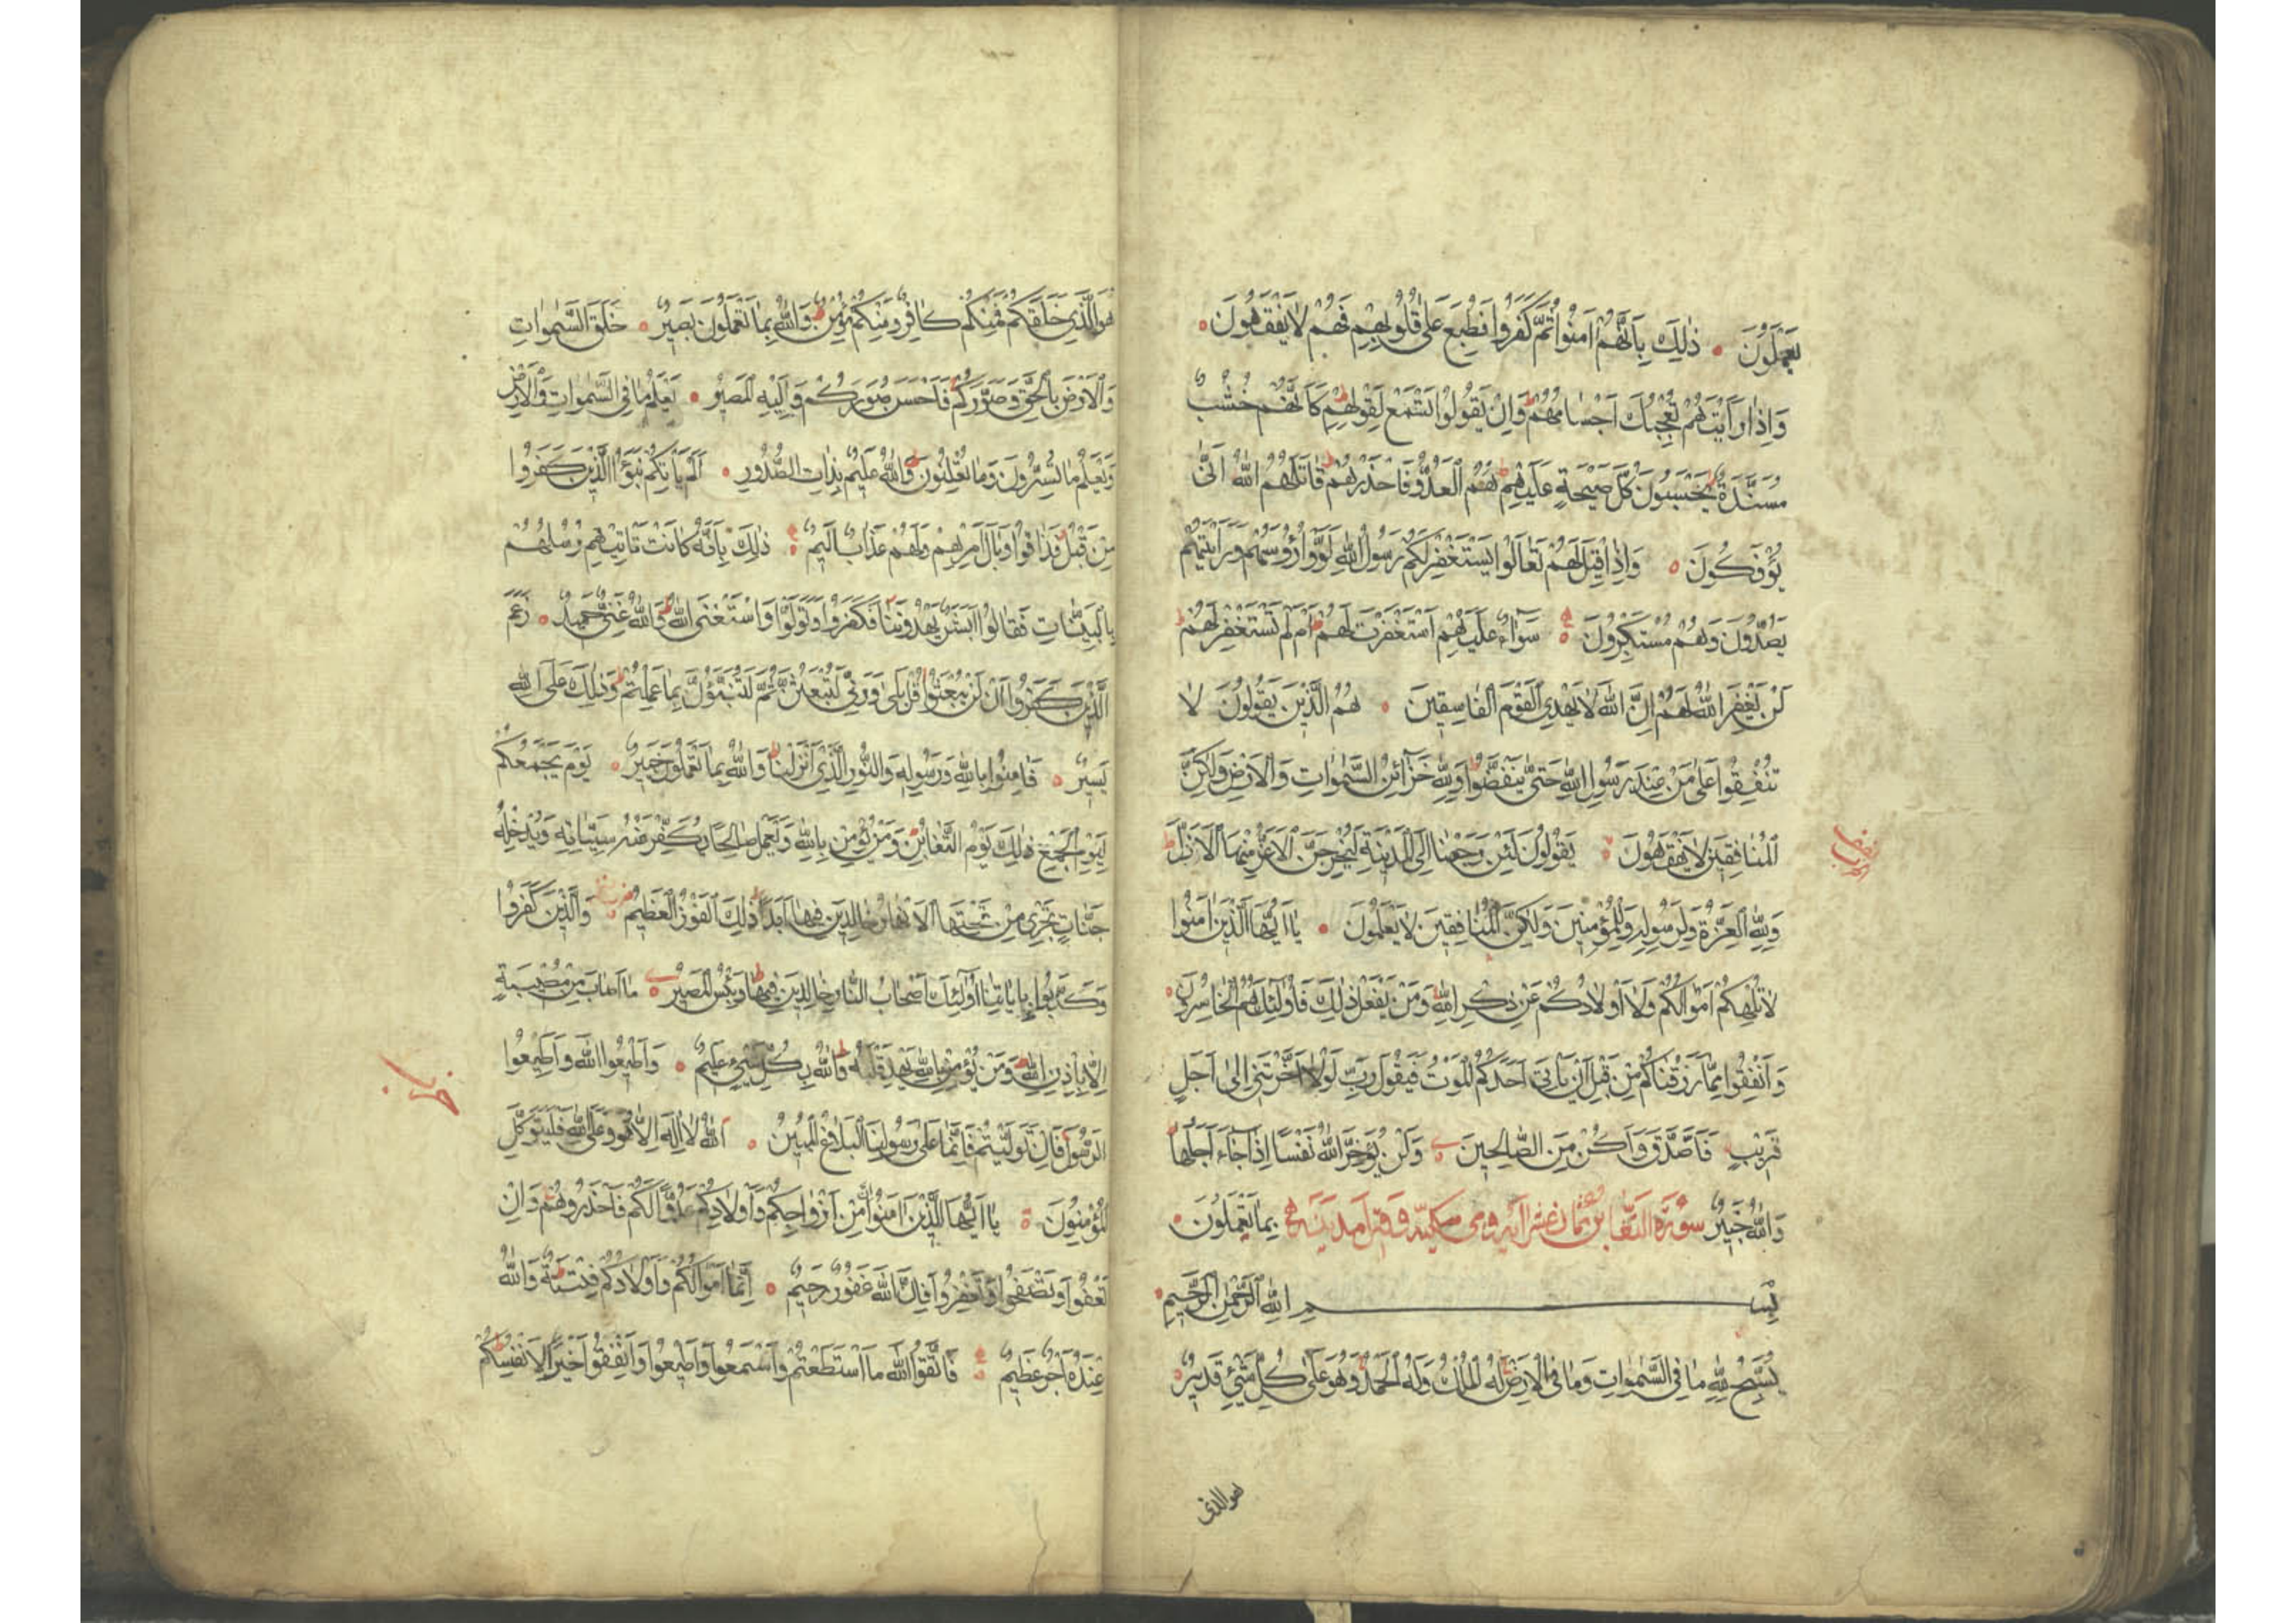 يَعْمَلُونَ ۰ ذٰلِكَ بِاَنَّهُمْ اٰمَنُوا ثُمَّ كَفَرُوا فَطُبِعَ عَلٰى قُلُوبِهِمْ فَهُمْ لَا يَفْقَهُونَ ۰
وَاِذَا رَاَيْتَهُمْ تُعْجِبُكَ اَجْسَامُهُمْ ط وَاِنْ يَقُولُوا تَسْمَعْ لِقَوْلِهِمْ ط كَاَنَّهُمْ خُشُبٌ
مُسَنَّدَةٌ ط يَحْسَبُونَ كُلَّ صَيْحَةٍ عَلَيْهِمْ ط هُمُ الْعَدُوُّ فَاحْذَرْهُمْ ط قَاتَلَهُمُ اللّٰهُ اَنّٰى
يُؤْفَكُونَ ۰ وَاِذَا قِيلَ لَهُمْ تَعَالَوْا يَسْتَغْفِرْ لَكُمْ رَسُولُ اللّٰهِ لَوَّوْا رُؤُسَهُمْ وَرَاَيْتَهُمْ
يَصُدُّونَ وَهُمْ مُسْتَكْبِرُونَ ۰ سَوَاءٌ عَلَيْهِمْ اَسْتَغْفَرْتَ لَهُمْ اَمْ لَمْ تَسْتَغْفِرْ لَهُمْ ط
لَنْ يَغْفِرَ اللّٰهُ لَهُمْ اِنَّ اللّٰهَ لَا يَهْدِي الْقَوْمَ الْفَاسِقِينَ ۰ هُمُ الَّذِينَ يَقُولُونَ لَا
تُنْفِقُوا عَلٰى مَنْ عِنْدَ رَسُولِ اللّٰهِ حَتّٰى يَنْفَضُّوا ط وَلِلّٰهِ خَزَائِنُ السَّمٰوَاتِ وَالْاَرْضِ وَلٰكِنَّ
الْمُنَافِقِينَ لَا يَفْقَهُونَ ۰ يَقُولُونَ لَئِنْ رَجَعْنَا اِلَى الْمَدِينَةِ لَيُخْرِجَنَّ الْاَعَزُّ مِنْهَا الْاَذَلَّ ط
وَلِلّٰهِ الْعِزَّةُ وَلِرَسُولِهِ وَلِلْمُؤْمِنِينَ وَلٰكِنَّ الْمُنَافِقِينَ لَا يَعْلَمُونَ ۰ يَا اَيُّهَا الَّذِينَ اٰمَنُوا
لَا تُلْهِكُمْ اَمْوَالُكُمْ وَلَا اَوْلَادُكُمْ عَنْ ذِكْرِ اللّٰهِ وَمَنْ يَفْعَلْ ذٰلِكَ فَاُولٰئِكَ هُمُ الْخَاسِرُونَ ۰
وَاَنْفِقُوا مِمَّا رَزَقْنَاكُمْ مِنْ قَبْلِ اَنْ يَاْتِيَ اَحَدَكُمُ الْمَوْتُ فَيَقُولَ رَبِّ لَوْلَا اَخَّرْتَنِي اِلٰى اَجَلٍ
قَرِيبٍ فَاَصَّدَّقَ وَاَكُنْ مِنَ الصَّالِحِينَ ۰ وَلَنْ يُؤَخِّرَ اللّٰهُ نَفْسًا اِذَا جَاءَ اَجَلُهَا ط
وَاللّٰهُ خَبِيرٌ سورة التغابن ثمان عشر آية وهي مكية وقيل مدنية بِمَا تَعْمَلُونَ ۰
بِسْمِ اللّٰهِ الرَّحْمٰنِ الرَّحِيمِ ۰
يُسَبِّحُ لِلّٰهِ مَا فِي السَّمٰوَاتِ وَمَا فِي الْاَرْضِ لَهُ الْمُلْكُ وَلَهُ الْحَمْدُ وَهُوَ عَلٰى كُلِّ شَيْءٍ قَدِيرٌ ۰
هو الذي
هُوَ الَّذِي خَلَقَكُمْ فَمِنْكُمْ كَافِرٌ وَمِنْكُمْ مُؤْمِنٌ ط وَاللّٰهُ بِمَا تَعْمَلُونَ بَصِيرٌ ۰ خَلَقَ السَّمٰوَاتِ
وَالْاَرْضَ بِالْحَقِّ وَصَوَّرَكُمْ فَاَحْسَنَ صُوَرَكُمْ وَاِلَيْهِ الْمَصِيرُ ۰ يَعْلَمُ مَا فِي السَّمٰوَاتِ وَالْاَرْضِ
وَيَعْلَمُ مَا تُسِرُّونَ وَمَا تُعْلِنُونَ ط وَاللّٰهُ عَلِيمٌ بِذَاتِ الصُّدُورِ ۰ اَلَمْ يَاْتِكُمْ نَبَؤُا الَّذِينَ كَفَرُوا
مِنْ قَبْلُ فَذَاقُوا وَبَالَ اَمْرِهِمْ وَلَهُمْ عَذَابٌ اَلِيمٌ ۰ ذٰلِكَ بِاَنَّهُ كَانَتْ تَاْتِيهِمْ رُسُلُهُمْ
بِالْبَيِّنَاتِ فَقَالُوا اَبَشَرٌ يَهْدُونَنَا فَكَفَرُوا وَتَوَلَّوْا وَاسْتَغْنَى اللّٰهُ ط وَاللّٰهُ غَنِيٌّ حَمِيدٌ ۰ زَعَمَ
الَّذِينَ كَفَرُوا اَنْ لَنْ يُبْعَثُوا قُلْ بَلٰى وَرَبِّي لَتُبْعَثُنَّ ثُمَّ لَتُنَبَّؤُنَّ بِمَا عَمِلْتُمْ ط وَذٰلِكَ عَلَى اللّٰهِ
يَسِيرٌ ۰ فَاٰمِنُوا بِاللّٰهِ وَرَسُولِهِ وَالنُّورِ الَّذِي اَنْزَلْنَا ط وَاللّٰهُ بِمَا تَعْمَلُونَ خَبِيرٌ ۰ يَوْمَ يَجْمَعُكُمْ
لِيَوْمِ الْجَمْعِ ذٰلِكَ يَوْمُ التَّغَابُنِ وَمَنْ يُؤْمِنْ بِاللّٰهِ وَيَعْمَلْ صَالِحًا يُكَفِّرْ عَنْهُ سَيِّئَاتِهِ وَيُدْخِلْهُ
جَنَّاتٍ تَجْرِي مِنْ تَحْتِهَا الْاَنْهَارُ خَالِدِينَ فِيهَا اَبَدًا ذٰلِكَ الْفَوْزُ الْعَظِيمُ ۰ وَالَّذِينَ كَفَرُوا
وَكَذَّبُوا بِاٰيَاتِنَا اُولٰئِكَ اَصْحَابُ النَّارِ خَالِدِينَ فِيهَا ط وَبِئْسَ الْمَصِيرُ ۰ مَا اَصَابَ مِنْ مُصِيبَةٍ
اِلَّا بِاِذْنِ اللّٰهِ وَمَنْ يُؤْمِنْ بِاللّٰهِ يَهْدِ قَلْبَهُ ط وَاللّٰهُ بِكُلِّ شَيْءٍ عَلِيمٌ ۰ وَاَطِيعُوا اللّٰهَ وَاَطِيعُوا
الرَّسُولَ فَاِنْ تَوَلَّيْتُمْ فَاِنَّمَا عَلٰى رَسُولِنَا الْبَلَاغُ الْمُبِينُ ۰ اَللّٰهُ لَا اِلٰهَ اِلَّا هُوَ وَعَلَى اللّٰهِ فَلْيَتَوَكَّلِ
الْمُؤْمِنُونَ ۰ يَا اَيُّهَا الَّذِينَ اٰمَنُوا اِنَّ مِنْ اَزْوَاجِكُمْ وَاَوْلَادِكُمْ عَدُوًّا لَكُمْ فَاحْذَرُوهُمْ وَاِنْ
تَعْفُوا وَتَصْفَحُوا وَتَغْفِرُوا فَاِنَّ اللّٰهَ غَفُورٌ رَحِيمٌ ۰ اِنَّمَا اَمْوَالُكُمْ وَاَوْلَادُكُمْ فِتْنَةٌ ط وَاللّٰهُ
عِنْدَهُ اَجْرٌ عَظِيمٌ ۰ فَاتَّقُوا اللّٰهَ مَا اسْتَطَعْتُمْ وَاسْمَعُوا وَاَطِيعُوا وَاَنْفِقُوا خَيْرًا لِاَنْفُسِكُمْ